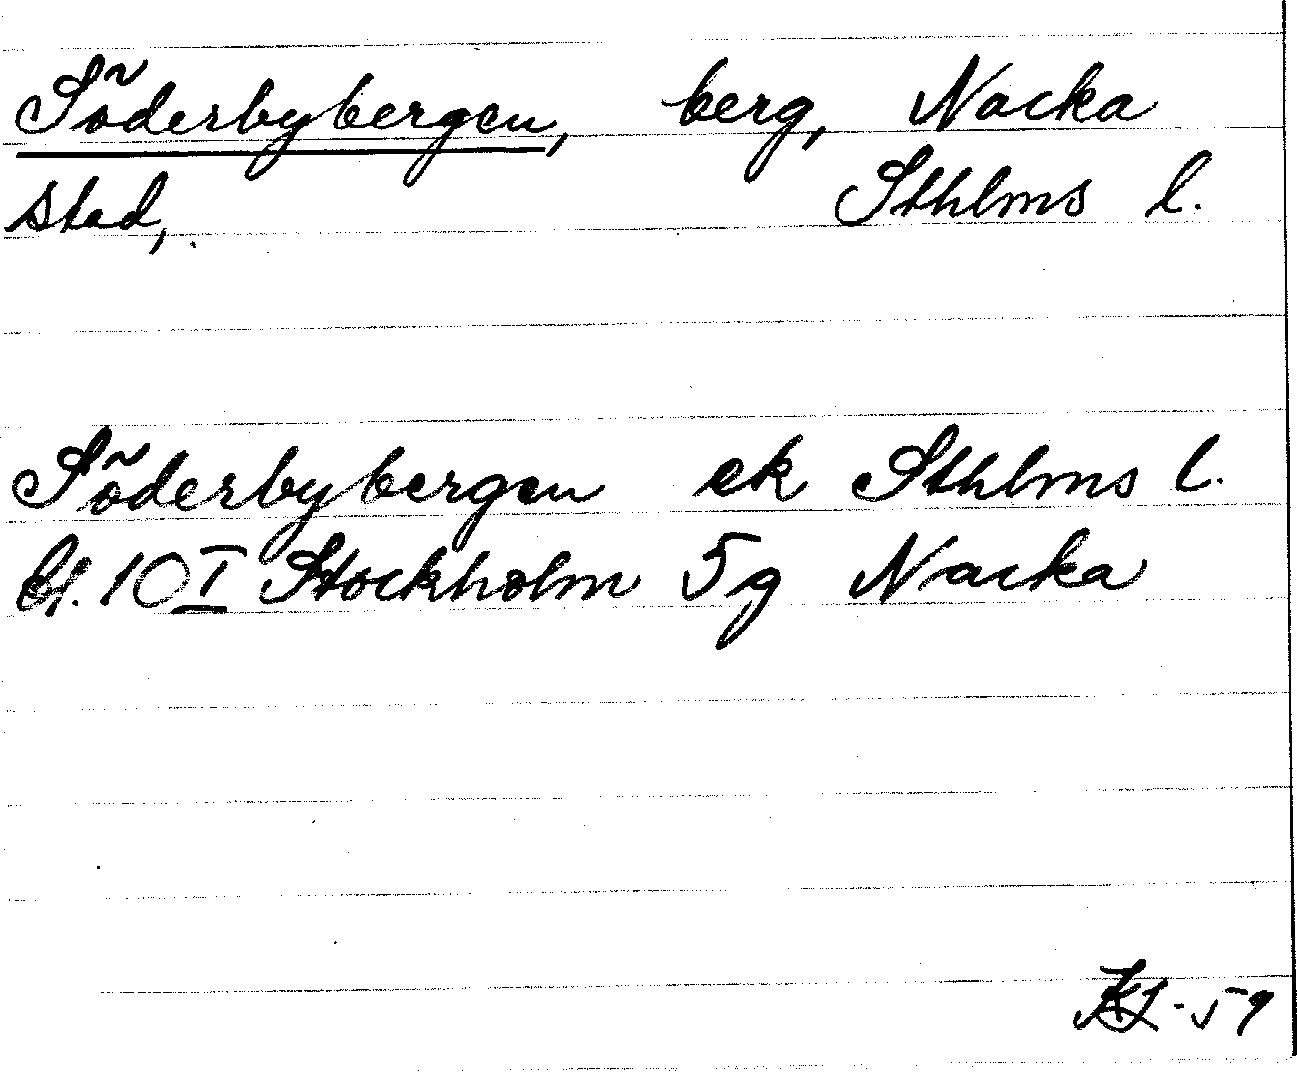 Söderbybergen, berg, Nacka
stad, Sthlms l.
Söderbybergen ek Sthlms l.
bl. 10 I Stockholm 5g Nacka
-59